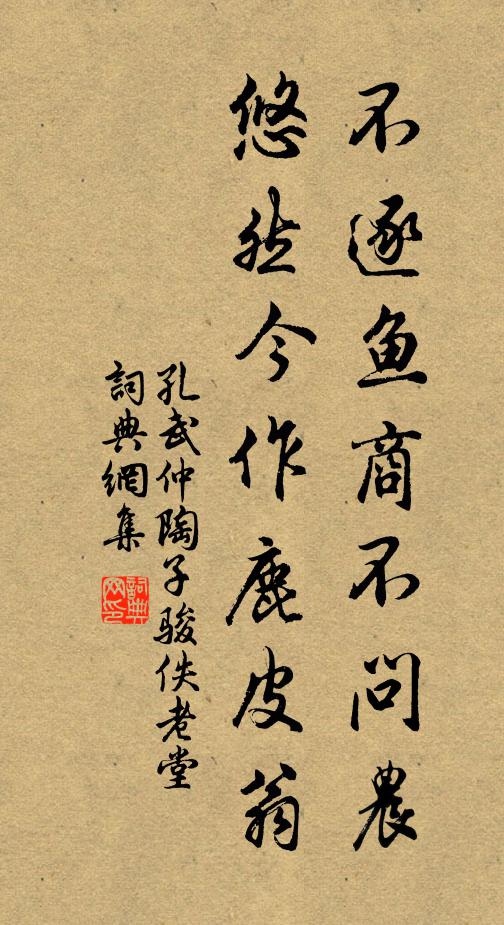 不逐鱼商不问農
悠然今作鹿皮翁
孔武仲陶子駿佚老堂
詞典網集
詞典网印